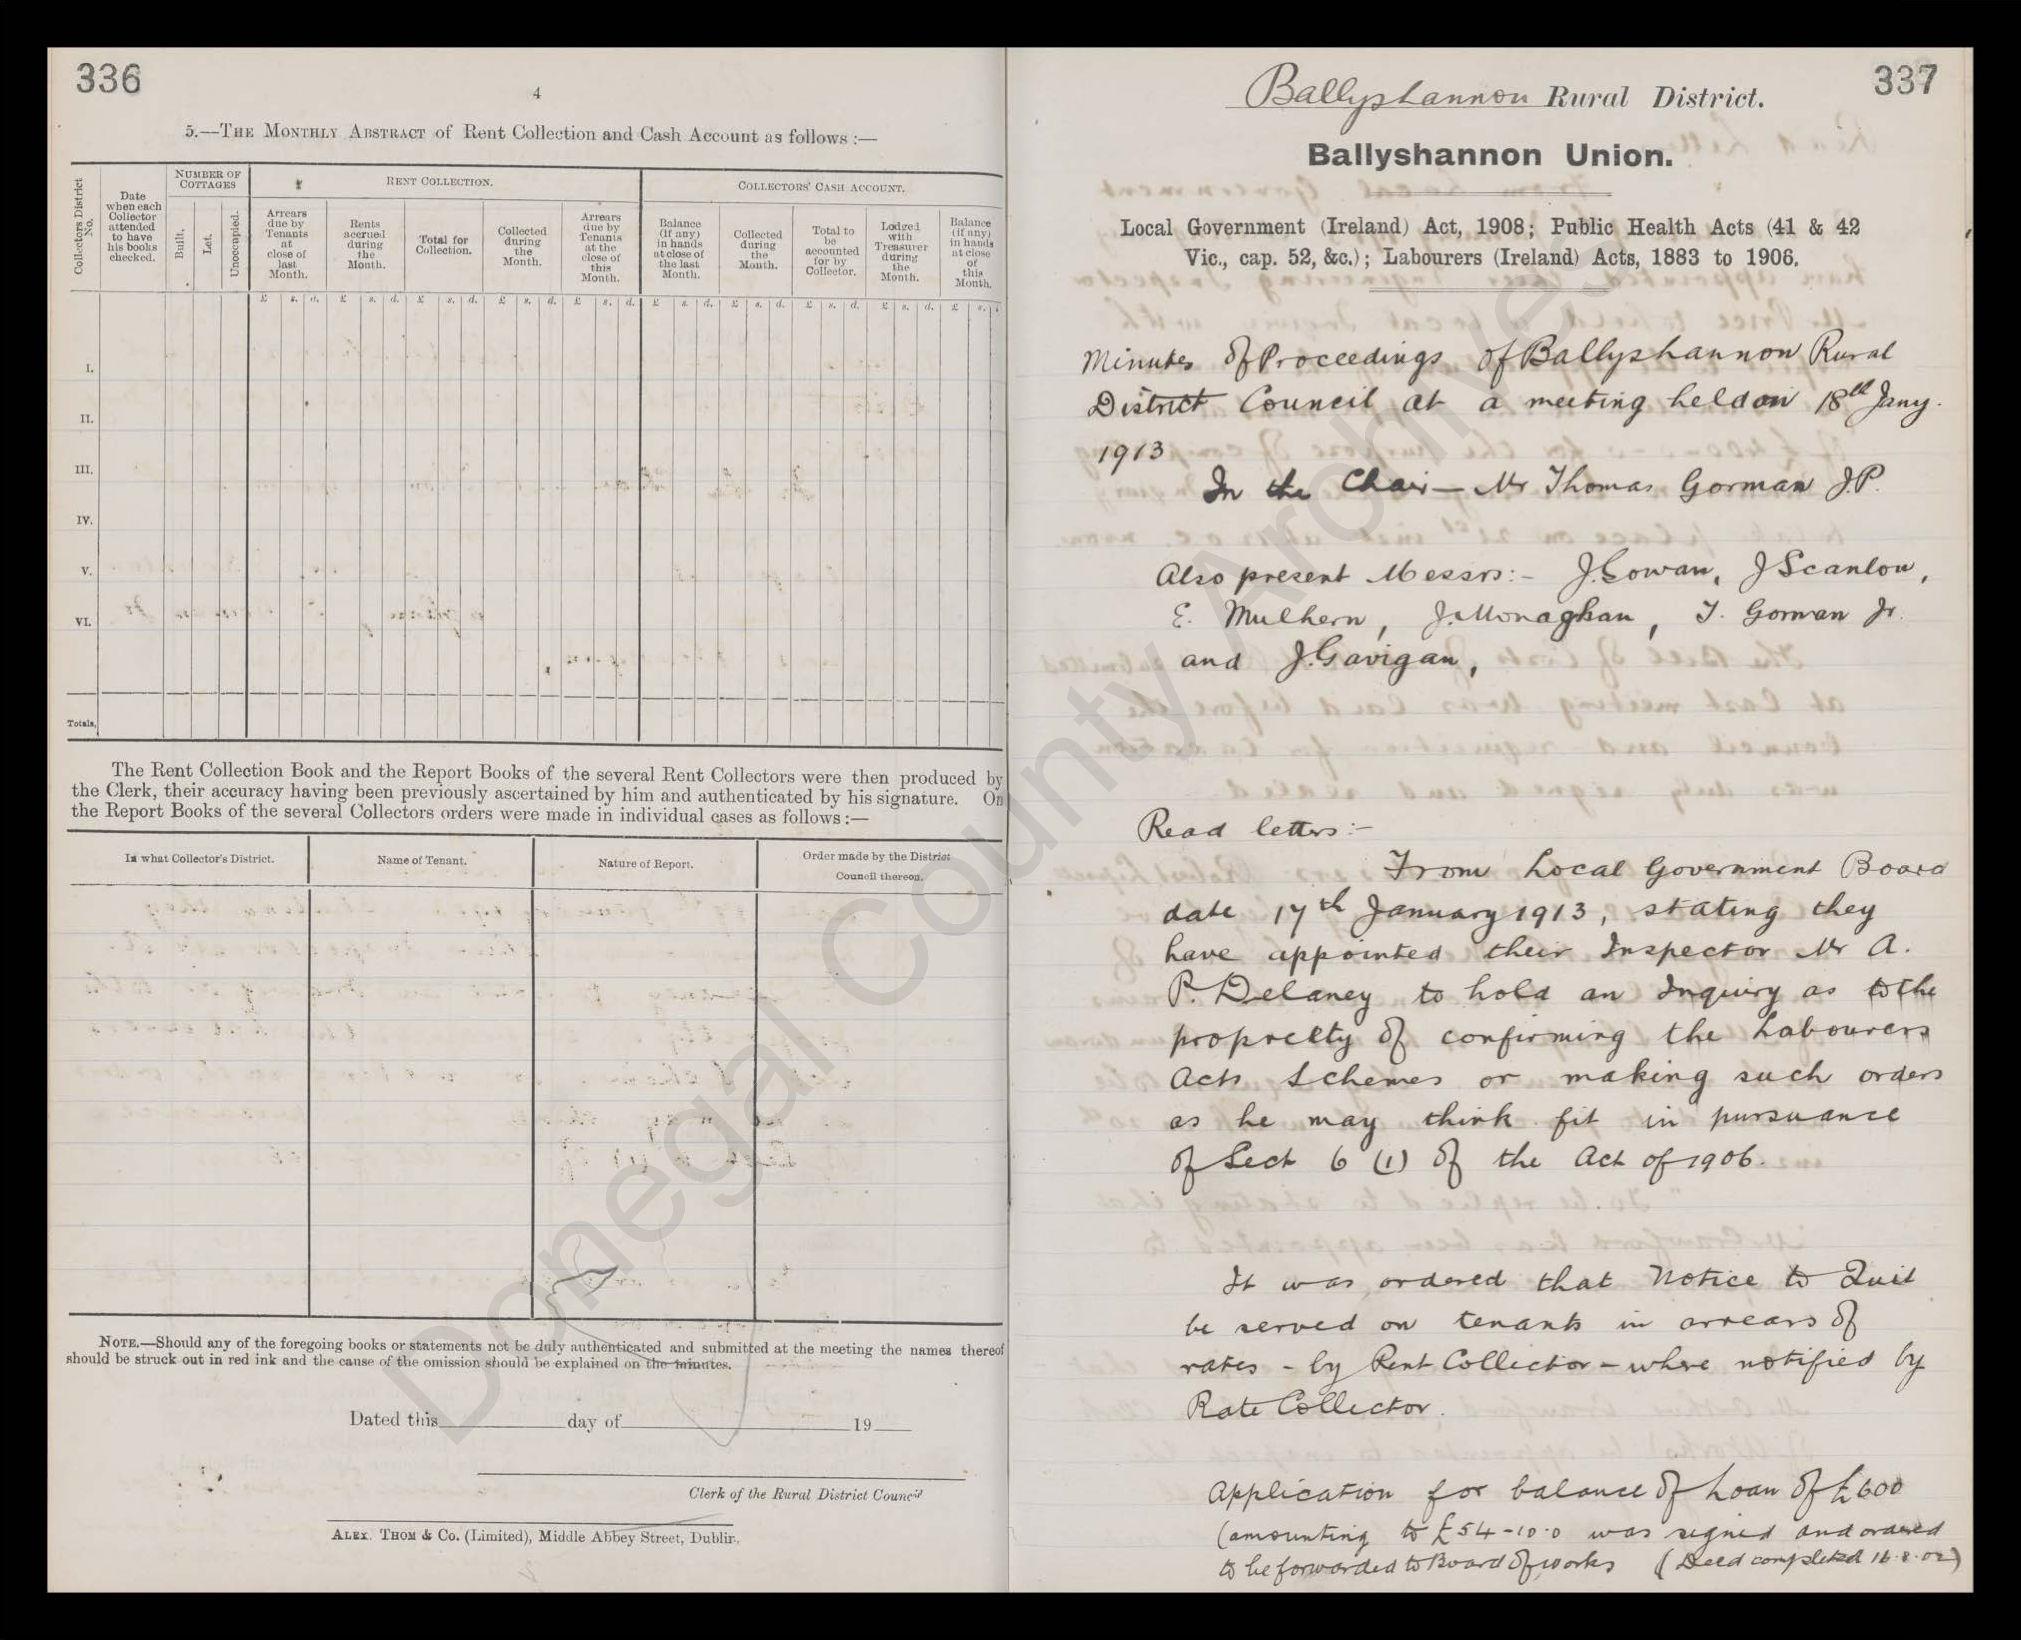 336
4
5.—THE MONTHLY ABSTRACT of Rent Collection and Cash Account as follows :—
Collectors District No.
Date when each Collector attended to have his books checked.
NUMBER OF COTTAGES
Built.
Let.
Unoccupied.
RENT COLLECTION.
Arrears due by Tenants at close of last Month.
Rents accrued during the Month.
Total for Collection.
Collected during the Month.
Arrears due by Tenants at the close of this Month.
COLLECTORS' CASH ACCOUNT.
Balance (if any) in hands at close of the last Month.
Collected during the Month.
Total to be accounted for by Collector.
Lodged with Treasurer during the Month.
Balance (if any) in hands at close of this Month.
£ s. d. £ s. d. £ s. d. £ s. d. £ s. d. £ s. d. £ s. d. £ s. d. £ s. d. £ s.
I.
II.
III.
IV.
V.
VI.
Totals,
The Rent Collection Book and the Report Books of the several Rent Collectors were then produced by
the Clerk, their accuracy having been previously ascertained by him and authenticated by his signature. On
the Report Books of the several Collectors orders were made in individual cases as follows :—
In what Collector's District.
Name of Tenant.
Nature of Report.
Order made by the District
Council thereon.
NOTE.—Should any of the foregoing books or statements not be duly authenticated and submitted at the meeting the names thereof
should be struck out in red ink and the cause of the omission should be explained on the minutes.
Dated this day of 19
Clerk of the Rural District Council
ALEX. THOM & Co. (Limited), Middle Abbey Street, Dublin.
337
Ballyshannon Rural District.
Ballyshannon Union.
Local Government (Ireland) Act, 1908; Public Health Acts (41 & 42
Vic., cap. 52, &c.); Labourers (Ireland) Acts, 1883 to 1906.
Minutes of Proceedings of Ballyshannon Rural
District Council at a meeting held on 18th Jany.
1913
In the Chair — Mr Thomas Gorman J.P.
Also present Messrs:- J. Gowan, J Scanlon,
E. Mulhern, J. Monaghan, T. Gorman Jr.
and J. Gavigan,
Read letters:-
From Local Government Board
date 17th January 1913, stating they
have appointed their Inspector Mr A.
P. Delaney to hold an Inquiry as to the
propriety of confirming the Labourers
Acts Schemes or making such orders
as he may think fit in pursuance
of Sect 6 (1) of the Act of 1906.
It was ordered that Notice to Quit
be served on tenants in arrears of
rates - by Rent Collector - where notified by
Rate Collector.
Application for balance of Loan of £600
(amounting to £54-10-0 was signed and ordered
to be forwarded to Board of works (Deed completed 16.8.02)
Donegal County Archives